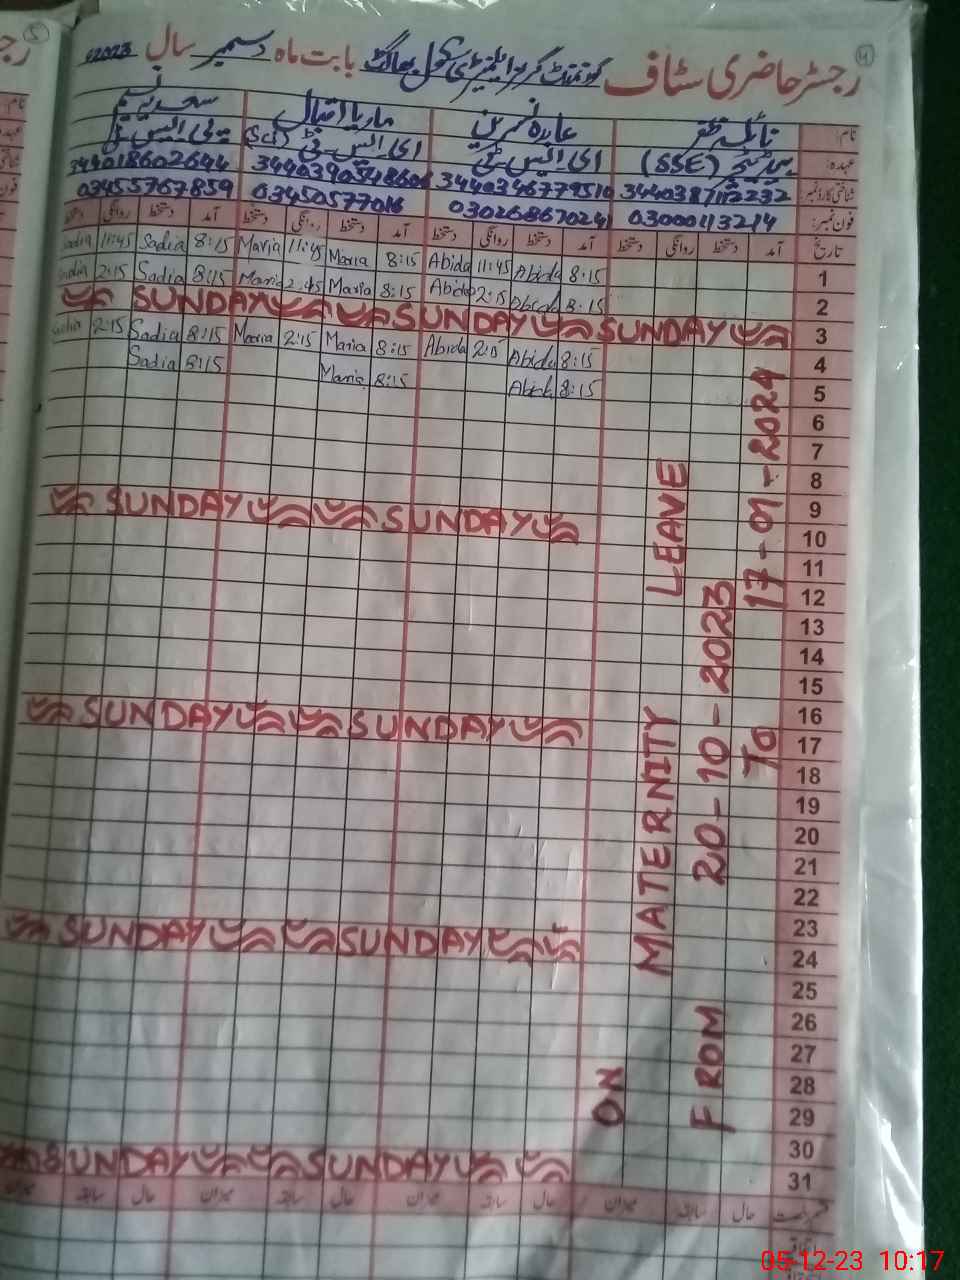 رجسٹر حاضری سٹاف گورنمنٹ گرلز ایلیمنٹری سکول بابت ماہ دسمبر سال 2023ء
نام: نائلہ ظفر عابدہ نسرین ماریا اقبال سعدیہ
عہدہ: (SSE) ای ایس ٹی ای ایس ٹی (Sci) پی ایس ٹی
شناختی کارڈ نمبر: 3440346779510 344018602644
فون نمبر: 03000113214 03026867024 03450577016 03455767859
تاریخ آمد دستخط روانگی دستخط آمد دستخط روانگی دستخط آمد دستخط روانگی دستخط آمد دستخط روانگی دستخط
1 8:15 Abida 11:45 Abida 8:15 Maria 11:45 Maria 8:15 Sadia 11:45 Sadia
2 8:15 Abida 2:15 Abida 8:15 Maria 2:45 Maria 8:15 Sadia 2:15 Sadia
3 SUNDAY SUNDAY SUNDAY
4 8:15 Abida 2:15 Abida 8:15 Maria 2:15 Maria 8:15 Sadia 2:15 Sadia
5 8:15 Abida 8:15 Maria 8:15 Sadia
6
7
8
9
10 SUNDAY SUNDAY
11
12
13
14
15
16
17 SUNDAY SUNDAY
18
19
20
21
22
23
24 SUNDAY SUNDAY
25
26
27
28
29
30
31 SUNDAY SUNDAY
ON
MATERNITY LEAVE
FROM 20-10-2023
To 17-01-2024
حال سابقہ میزان حال سابقہ میزان حال سابقہ میزان حال سابقہ میزان
05-12-23 10:17